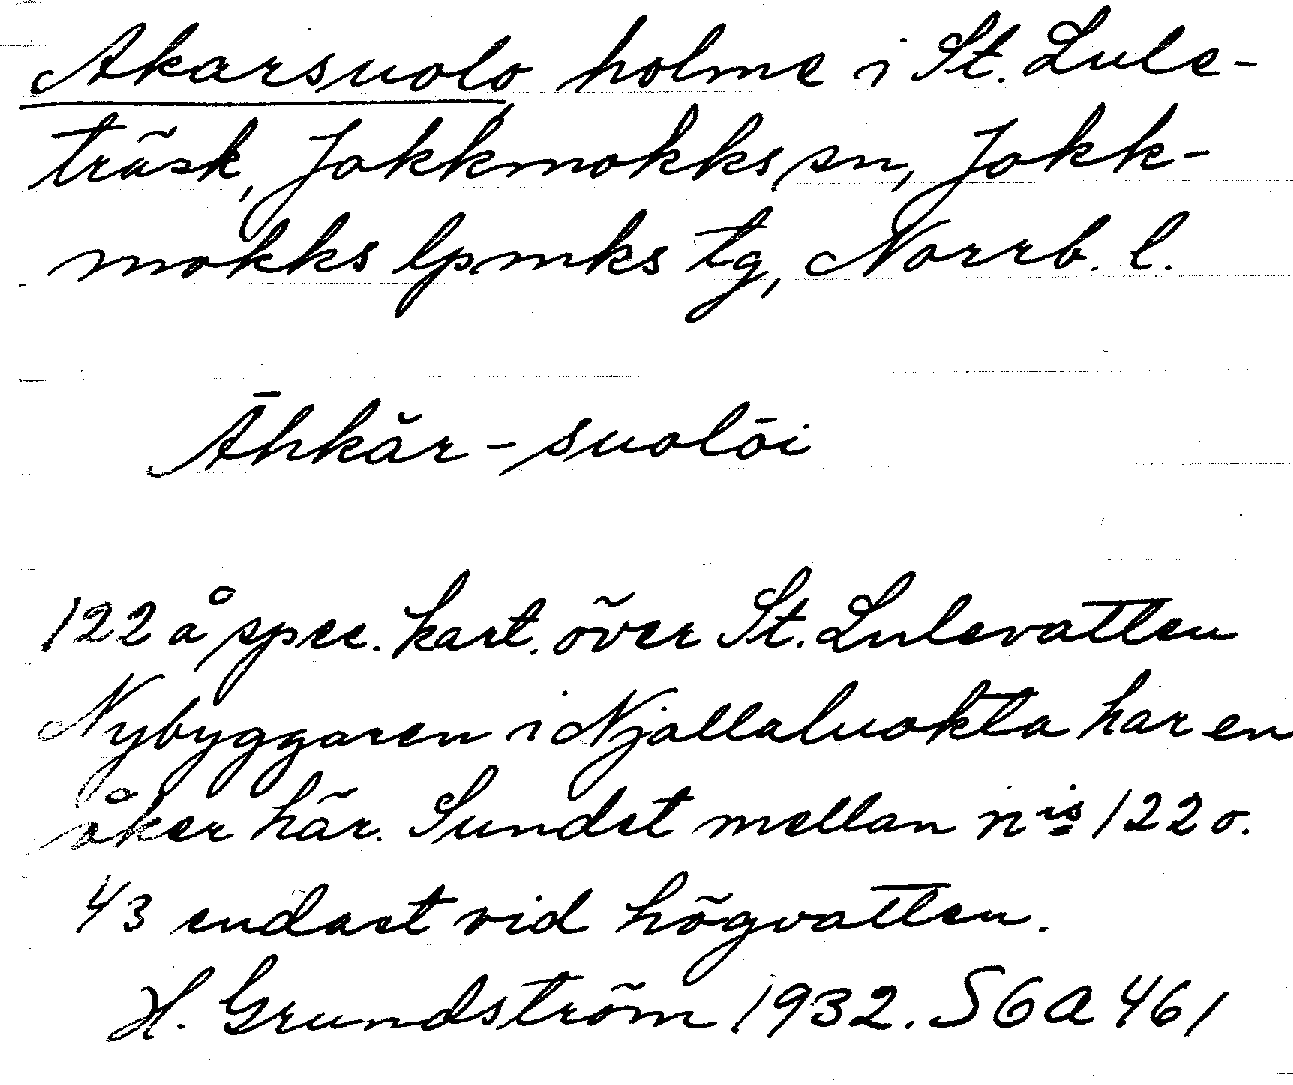 Akarsuolo holme i St. Lule-
träsk, Jokkmokks sn, Jokk-
mokks lpmks tg, Norrb. l.
Āhkăr-suolōi
122 å spec. kart. över St. Lulevatten
Nybyggaren i Njallaluokta har en
åker här. Sundet mellan nis 122 o.
43 endast vid högvatten.
H. Grundström 1932. SGA 461